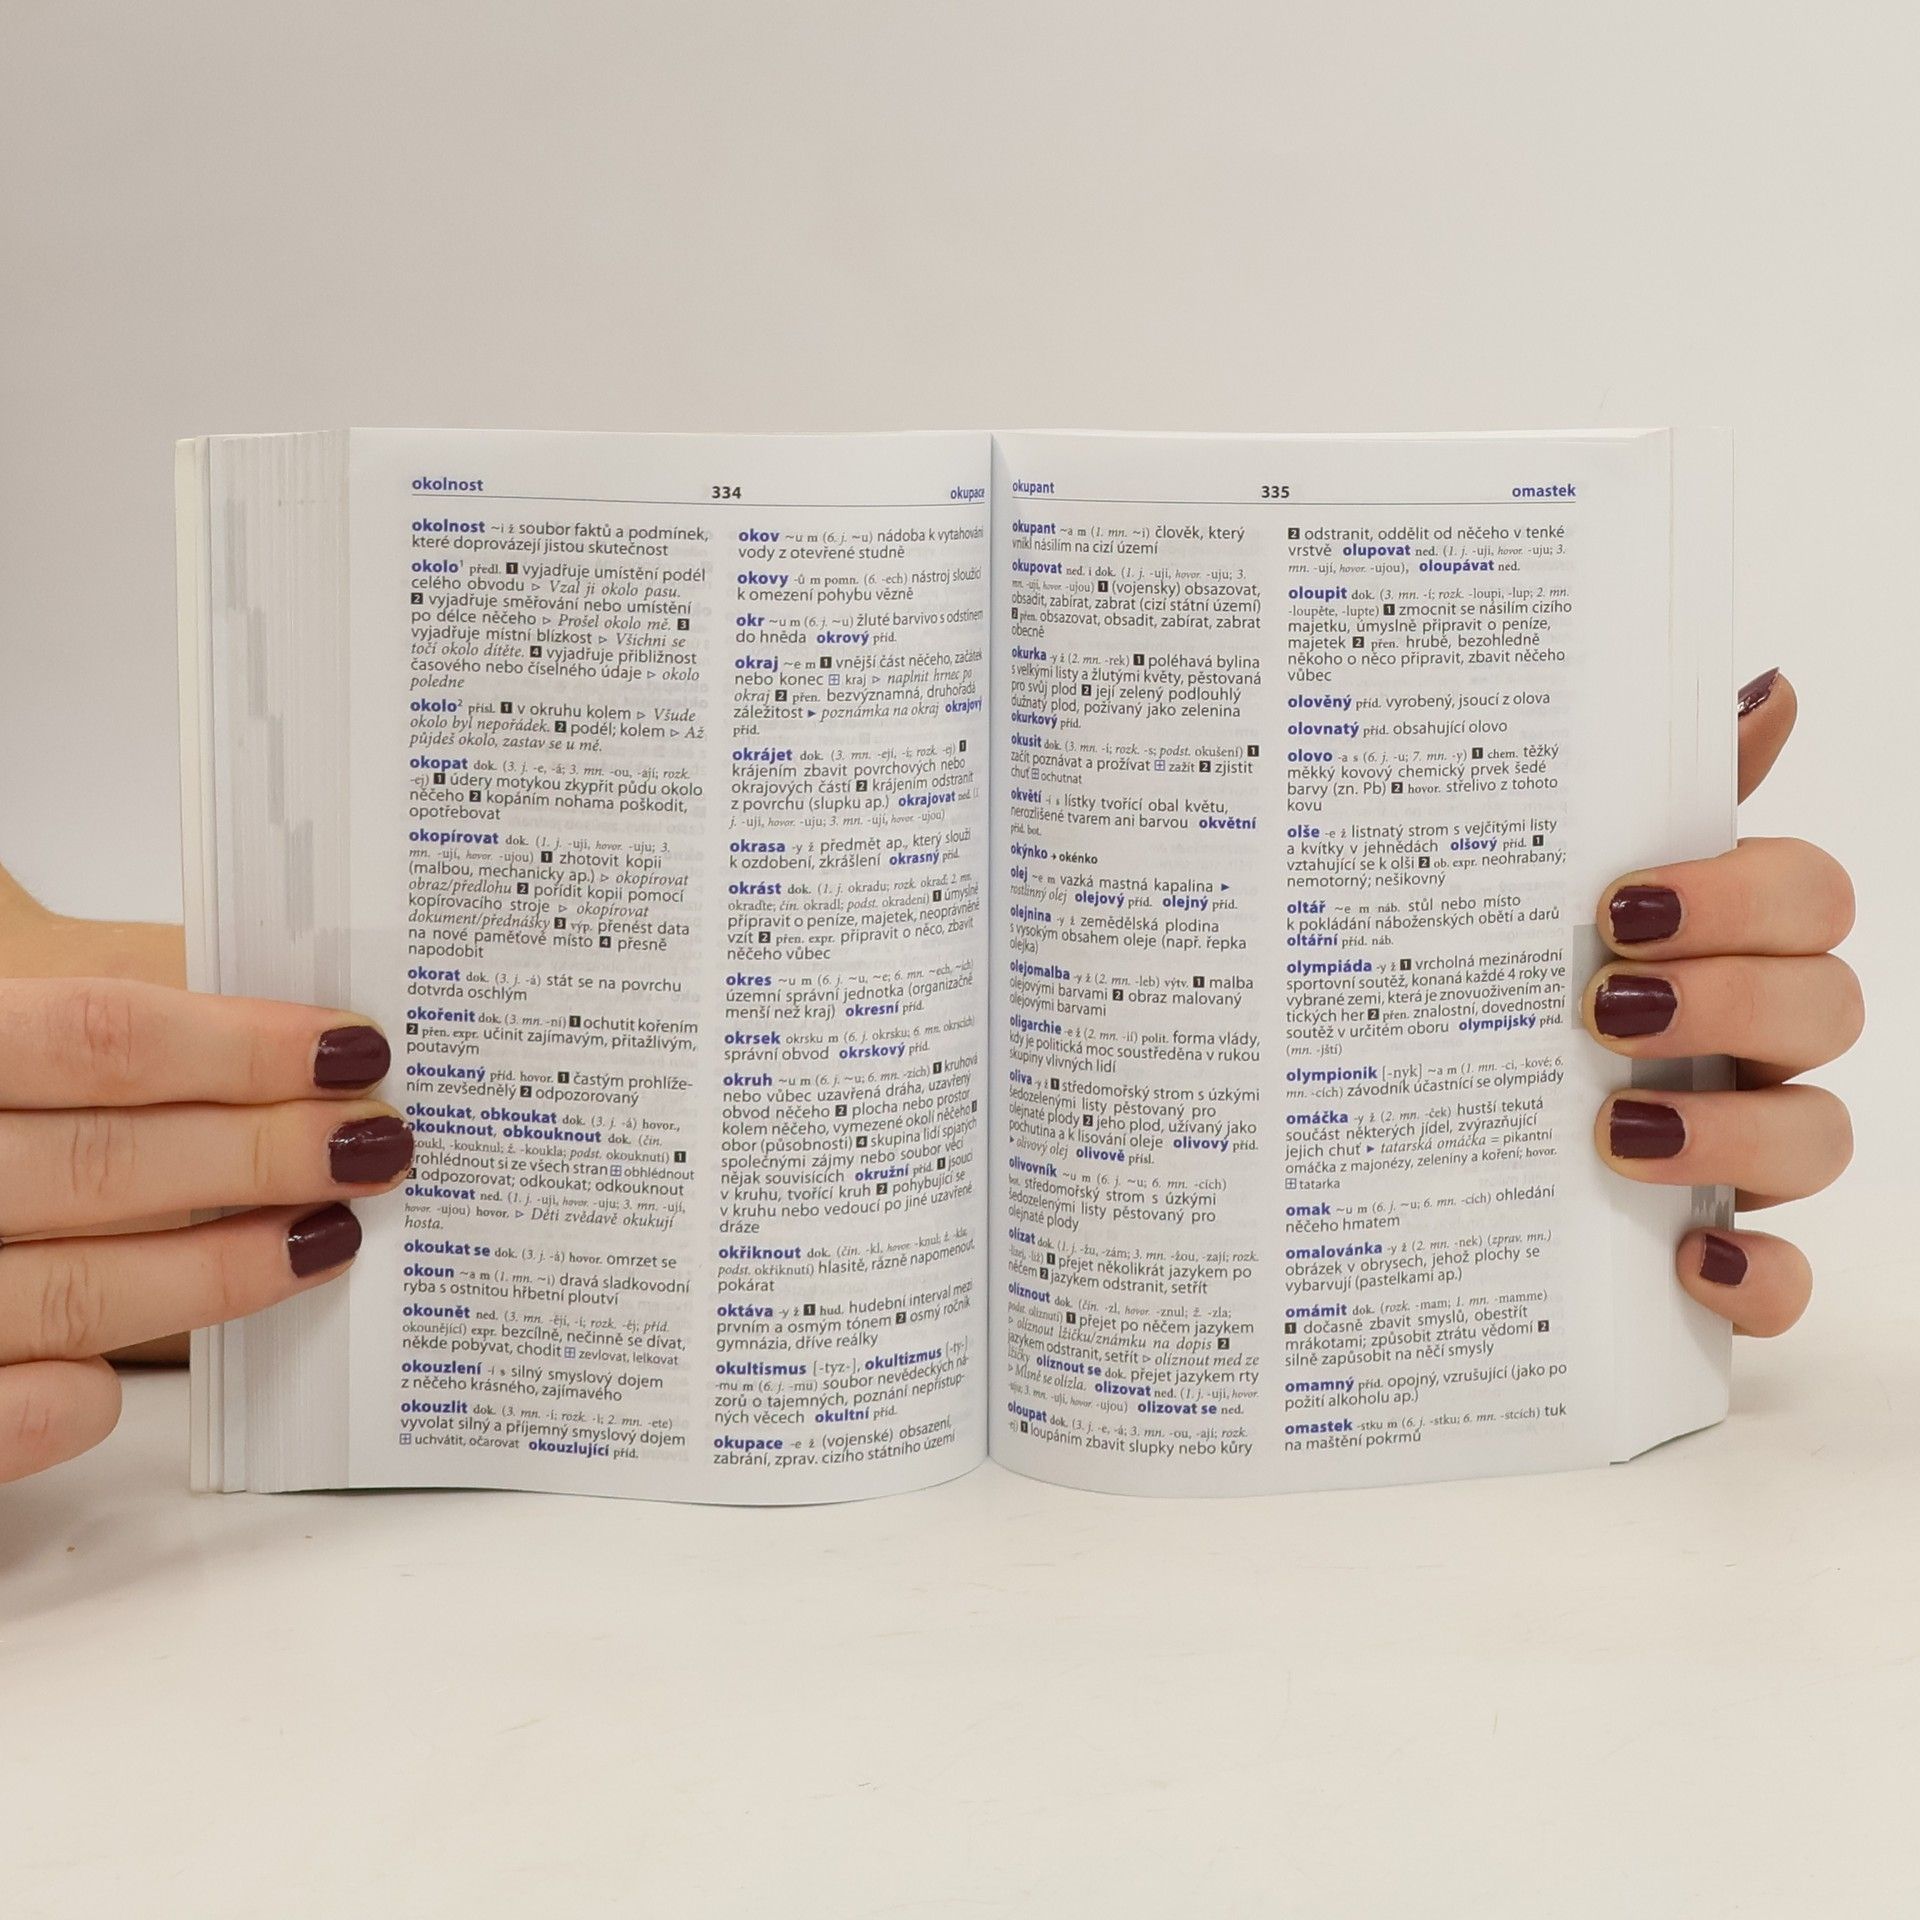 okolnost 334 okupace
okolnost ~i ž soubor faktů a podmínek,
které doprovázejí jistou skutečnost
okolo¹ předl. 1 vyjadřuje umístění podél
celého obvodu ▷ Vzal ji okolo pasu.
2 vyjadřuje směřování nebo umístění
po délce něčeho ▷ Prošel okolo mě. 3
vyjadřuje místní blízkost ▷ Všichni se
točí okolo dítěte. 4 vyjadřuje přibližnost
časového nebo číselného údaje ▷ okolo
poledne
okolo² přísl. 1 v okruhu kolem ▷ Všude
okolo byl nepořádek. 2 podél; kolem ▷ Až
půjdeš okolo, zastav se u mě.
okopat dok. (3. j. -e, -á; 3. mn. -ou, -ají; rozk.
-ej) 1 údery motykou zkypřit půdu okolo
něčeho 2 kopáním nohama poškodit,
opotřebovat
okopírovat dok. (1. j. -uji, hovor. -uju; 3.
mn. -ují, hovor. -ujou) 1 zhotovit kopii
(malbou, mechanicky ap.) ▷ okopírovat
obraz/předlohu 2 pořídit kopii pomocí
kopírovacího stroje ▷ okopírovat
dokument/přednášky 3 výp. přenést data
na nové paměťové místo 4 přesně
napodobit
okorat dok. (3. j. -á) stát se na povrchu
dotvrda oschlým
okořenit dok. (3. mn. -ní) 1 ochutit kořením
2 přen. expr. učinit zajímavým, přitažlivým,
poutavým
okoukaný příd. hovor. 1 častým prohlíže-
ním zevšednělý 2 odpozorovaný
okoukat, obkoukat dok. (3. j. -á) hovor.,
okouknout, obkouknout dok. (čin.
-koukl, -kouknul; ž. -koukla; podst. okouknutí) 1
prohlédnout si ze všech stran ⊞ obhlédnout
2 odpozorovat; odkoukat; odkouknout
okukovat ned. (1. j. -uji, hovor. -uju; 3. mn. -ují,
hovor. -ujou) hovor. ▷ Děti zvědavě okukují
hosta.
okoukat se dok. (3. j. -á) hovor. omrzet se
okoun ~a m (1. mn. ~i) dravá sladkovodní
ryba s ostnitou hřbetní ploutví
okounět ned. (3. mn. -ějí, -í; rozk. -ěj; příd.
okounějící) expr. bezcílně, nečinně se dívat,
někde pobývat, chodit ⊞ zevlovat, lelkovat
okouzlení -í s silný smyslový dojem
z něčeho krásného, zajímavého
okouzlit dok. (3. mn. -í; rozk. -i; 2. mn. -ete)
vyvolat silný a příjemný smyslový dojem
⊞ uchvátit, očarovat okouzlující příd.
okov ~u m (6. j. ~u) nádoba k vytahování
vody z otevřené studně
okovy -ů m pomn. (6. -ech) nástroj sloužící
k omezení pohybu vězně
okr ~u m (6. j. ~u) žluté barvivo s odstínem
do hněda okrový příd.
okraj ~e m 1 vnější část něčeho, začátek
nebo konec ⊞ kraj ▷ naplnit hrnec po
okraj 2 přen. bezvýznamná, druhořadá
záležitost ▶ poznámka na okraj okrajový
příd.
okrájet dok. (3. mn. -ejí, -í; rozk. -ej) 1
krájením zbavit povrchových nebo
okrajových částí 2 krájením odstranit
z povrchu (slupku ap.) okrajovat ned. (1.
j. -uji, hovor. -uju; 3. mn. -ují, hovor. -ujou)
okrasa -y ž předmět ap., který slouží
k ozdobení, zkrášlení okrasný příd.
okrást dok. (1. j. okradu; rozk. okraď; 2. mn.
okraďte; čin. okradl; podst. okradení) 1 úmyslně
připravit o peníze, majetek, neoprávněně
vzít 2 přen. expr. připravit o něco, zbavit
něčeho vůbec
okres ~u m (6. j. ~u, ~e; 6. mn. ~ech, ~ích)
územní správní jednotka (organizačně
menší než kraj) okresní příd.
okrsek okrsku m (6. j. okrsku; 6. mn. okrscích)
správní obvod okrskový příd.
okruh ~u m (6. j. ~u; 6. mn. -zích) 1 kruhová
nebo vůbec uzavřená dráha, uzavřený
obvod něčeho 2 plocha nebo prostor
kolem něčeho, vymezené okolí něčeho 3
obor (působnosti) 4 skupina lidí spjatých
společnými zájmy nebo soubor věcí
nějak souvisících okružní příd. 1 jsoucí
v kruhu, tvořící kruh 2 pohybující se
v kruhu nebo vedoucí po jiné uzavřené
dráze
okřiknout dok. (čin. -kl, hovor. -knul; ž. -kla;
podst. okřiknutí) hlasitě, rázně napomenout,
pokárat
oktáva -y ž 1 hud. hudební interval mezi
prvním a osmým tónem 2 osmý ročník
gymnázia, dříve reálky
okultismus [-tyz-], okultizmus [-ty-]
-mu m (6. j. -mu) soubor nevědeckých ná-
zorů o tajemných, poznání nepřístup-
ných věcech okultní příd.
okupace -e ž (vojenské) obsazení,
zabrání, zprav. cizího státního území
okupant 335 omastek
okupant ~a m (1. mn. ~i) člověk, který
vnikl násilím na cizí území
okupovat ned. i dok. (1. j. -uji, hovor. -uju; 3.
mn. -ují, hovor. -ujou) 1 (vojensky) obsazovat,
obsadit, zabírat, zabrat (cizí státní území)
2 přen. obsazovat, obsadit, zabírat, zabrat
obecně
okurka -y ž (2. mn. -rek) 1 poléhavá bylina
s velkými listy a žlutými květy, pěstovaná
pro svůj plod 2 její zelený podlouhlý
dužnatý plod, požívaný jako zelenina
okurkový příd.
okusit dok. (3. mn. -í; rozk. -s; podst. okušení) 1
začít poznávat a prožívat ⊞ zažít 2 zjistit
chuť ⊞ ochutnat
okvětí -í s lístky tvořící obal květu,
nerozlišené tvarem ani barvou okvětní
příd. bot.
okýnko → okénko
olej ~e m vazká mastná kapalina ▶
rostlinný olej olejový příd. olejný příd.
olejnina -y ž zemědělská plodina
s vysokým obsahem oleje (např. řepka
olejka)
olejomalba -y ž (2. mn. -leb) výtv. 1 malba
olejovými barvami 2 obraz malovaný
olejovými barvami
oligarchie -e ž (2. mn. -ií) polit. forma vlády,
kdy je politická moc soustředěna v rukou
skupiny vlivných lidí
oliva -y ž 1 středomořský strom s úzkými
šedozelenými listy pěstovaný pro
olejnaté plody 2 jeho plod, užívaný jako
pochutina a k lisování oleje olivový příd.
▶ olivový olej olivově přísl.
olivovník ~u m (6. j. ~u; 6. mn. -cích)
bot. středomořský strom s úzkými
šedozelenými listy pěstovaný pro
olejnaté plody
olízat dok. (1. j. -žu, -zám; 3. mn. -žou, -zají; rozk.
-ízej, -liž) 1 přejet několikrát jazykem po
něčem 2 jazykem odstranit, setřít
olíznout dok. (čin. -zl, hovor. -znul; ž. -zla;
podst. olíznutí) 1 přejet po něčem jazykem
▷ olíznout lžičku/známku na dopis 2
jazykem odstranit, setřít ▷ olíznout med ze
lžičky olíznout se dok. přejet jazykem rty
▷ Mlsně se olízla. olizovat ned. (1. j. -uji, hovor.
-uju; 3. mn. -ují, hovor. -ujou) olizovat se ned.
oloupat dok. (3. j. -e, -á; 3. mn. -ou, -ají; rozk.
-ej) 1 loupáním zbavit slupky nebo kůry
2 odstranit, oddělit od něčeho v tenké
vrstvě olupovat ned. (1. j. -uji, hovor. -uju; 3.
mn. -ují, hovor. -ujou), oloupávat ned.
oloupit dok. (3. mn. -í; rozk. -loupi, -lup; 2. mn.
-loupěte, -lupte) 1 zmocnit se násilím cizího
majetku, úmyslně připravit o peníze,
majetek 2 přen. hrubě, bezohledně
někoho o něco připravit, zbavit něčeho
vůbec
olověný příd. vyrobený, jsoucí z olova
olovnatý příd. obsahující olovo
olovo -a s (6. j. -u; 7. mn. -y) 1 chem. těžký
měkký kovový chemický prvek šedé
barvy (zn. Pb) 2 hovor. střelivo z tohoto
kovu
olše -e ž listnatý strom s vejčitými listy
a kvítky v jehnědách olšový příd. 1
vztahující se k olši 2 ob. expr. neohrabaný;
nemotorný; nešikovný
oltář ~e m náb. stůl nebo místo
k pokládání náboženských obětí a darů
oltářní příd. náb.
olympiáda -y ž 1 vrcholná mezinárodní
sportovní soutěž, konaná každé 4 roky ve
vybrané zemi, která je znovuoživením an-
tických her 2 přen. znalostní, dovednostní
soutěž v určitém oboru olympijský příd.
(mn. -jští)
olympionik [-nyk] ~a m (1. mn. -ci, -kové; 6.
mn. -cích) závodník účastnící se olympiády
omáčka -y ž (2. mn. -ček) hustší tekutá
součást některých jídel, zvýrazňující
jejich chuť ▶ tatarská omáčka = pikantní
omáčka z majonézy, zeleniny a koření; hovor.
⊞ tatarka
omak ~u m (6. j. ~u; 6. mn. -cích) ohledání
něčeho hmatem
omalovánka -y ž (2. mn. -nek) (zprav. mn.)
obrázek v obrysech, jehož plochy se
vybarvují (pastelkami ap.)
omámit dok. (rozk. -mam; 1. mn. -mamme)
1 dočasně zbavit smyslů, obestřít
mrákotami; způsobit ztrátu vědomí 2
silně zapůsobit na něčí smysly
omamný příd. opojný, vzrušující (jako po
požití alkoholu ap.)
omastek -stku m (6. j. -stku; 6. mn. -stcích) tuk
na maštění pokrmů